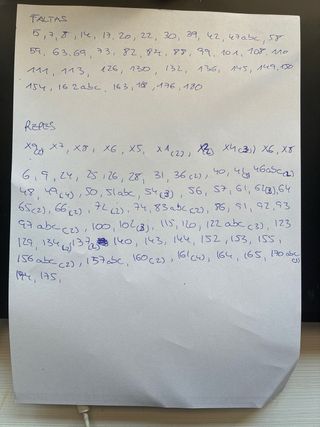 FALTAS
5, 7, 8, 14, 17, 20, 22, 30, 39, 42, 47abc, 58
59, 63, 69, 73, 82, 84, 88, 99, 101, 108, 110
111, 113, 126, 130, 132, 136, 145, 149, 150
154, 162abc, 163, 176, 180
REPES
X7, X8, X6, X5, X1(2), X4(3), X6, X8
6, 9, 24, 25, 26, 28, 31, 36(2), 40, 46abc(2)
48, 49(4), 50, 51abc, 54(3), 56, 57, 61, 62(3), 64
65(2), 66(2), 72(2), 74, 83abc(2), 86, 91, 92, 93
97abc(2), 100, 102(3), 115, 120, 122abc(3), 123
129, 134(2), 137(2), 140, 143, 144, 152, 153, 155,
156abc(2), 157abc, 160(2), 161(4), 164, 165, 170abc(3)
174, 175,